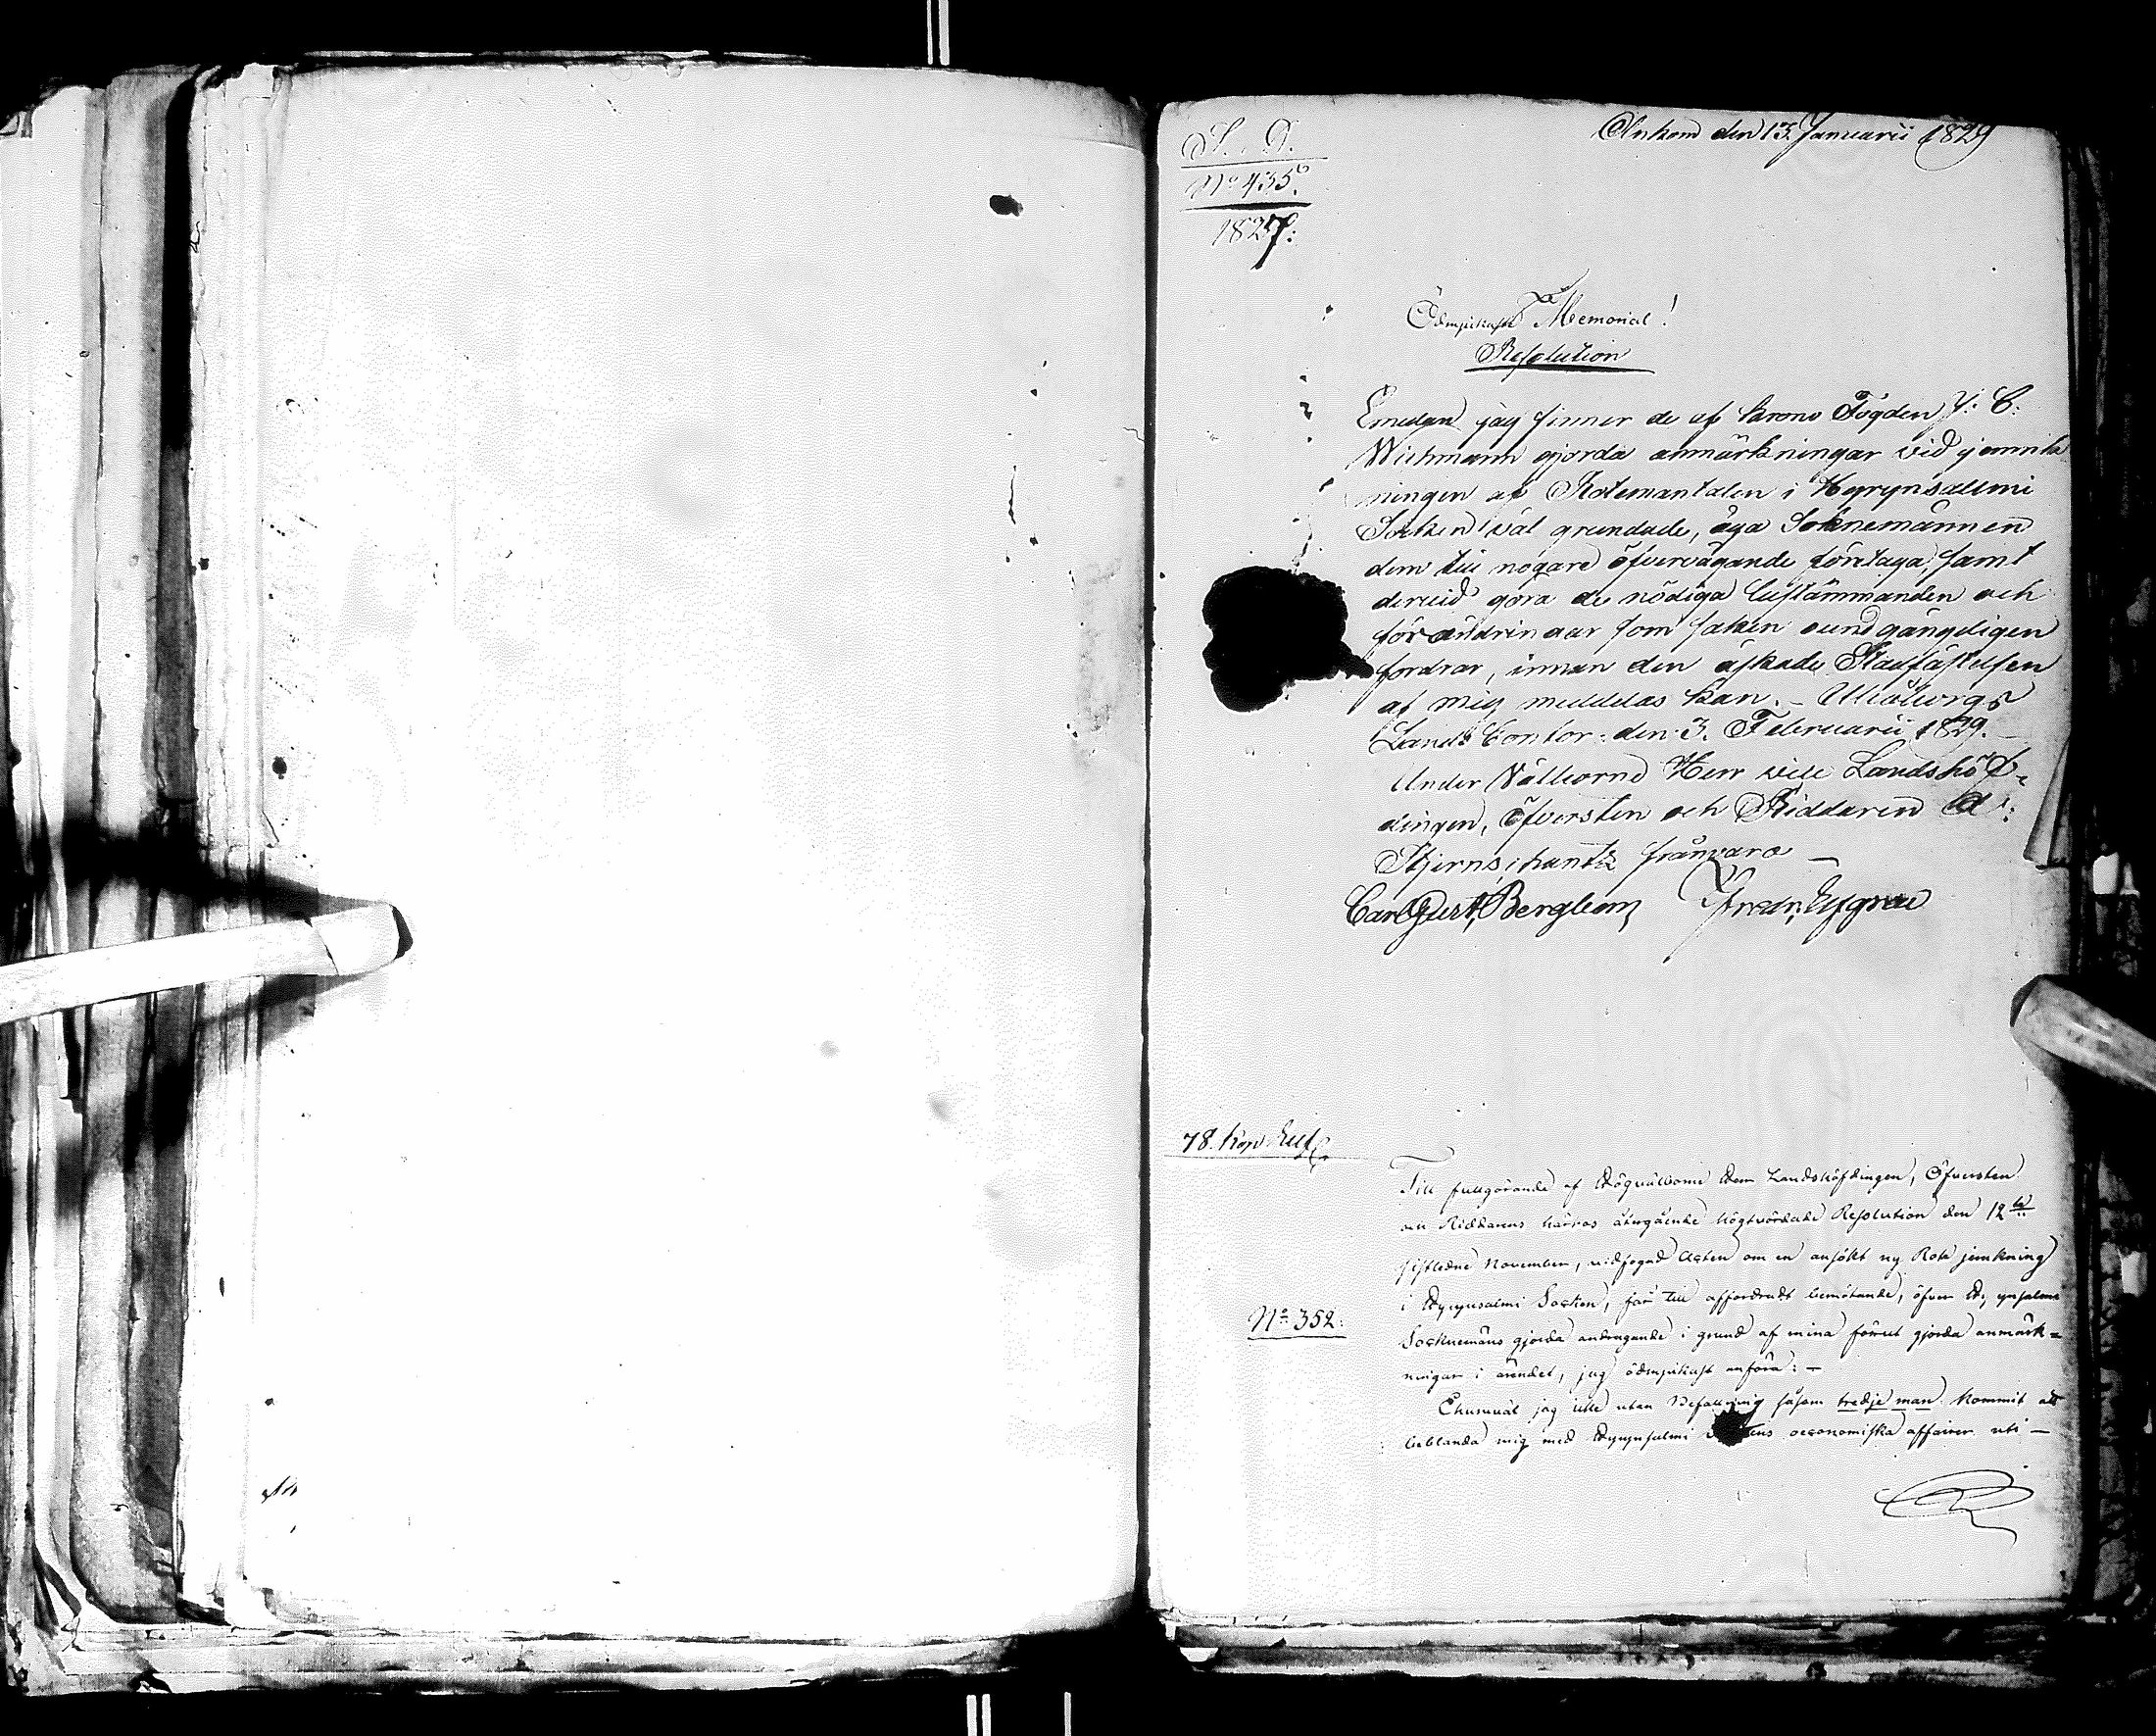 Ankom den 13 Januarii 1829
S. D.
No 435.
1827:
Ödmjukast Memorial!
Resolution
Emedan jag finner de af Krono Fogden J: C:
Wichmann gjorda anmärkningar vid jemnk
ningen af Rotemantalen i Hyrynsalmi
Socken väl grundade, äga Soknemännen
dem till nogare öfvervägande företaga, samt
dervid göra de nödiga bestämmanden och
förändringar som saken oundgängeligen
fordrar, innan den äskade Stadfästelsen
af mig meddelas kan. - Uleåborgs
Lands Contor den 3. Februarii 1829.
Under Välborne Herr vice Landshöf-
dingen, Öfversten och Riddaren
Stjernschantz frånvaro -
Carl Gust. Bergbom
78. Kop. Silf
Till fullgörande af Högvälborne Herr Landshöfdingen, Öfversten
och Riddarens härhos återgående högtvördade Resolution den 12te
sistledne November, vidfogad Acten om en ansökt ny Rote jemkning
i Hyrynsalmi Socken, får till affordradt bemötande, öfver Hyrynsalmi
No 352:
Socknemäns gjorda andragande i grund af mina förut gjorda anmärk=
ningar i ärendet, jag ödmjukast anföra: -
Ehuruväl jag icke utan Befallning såsom tredje man kommit att
beblanda mig med Hyrynsalmi oeconomiska affairer uti -